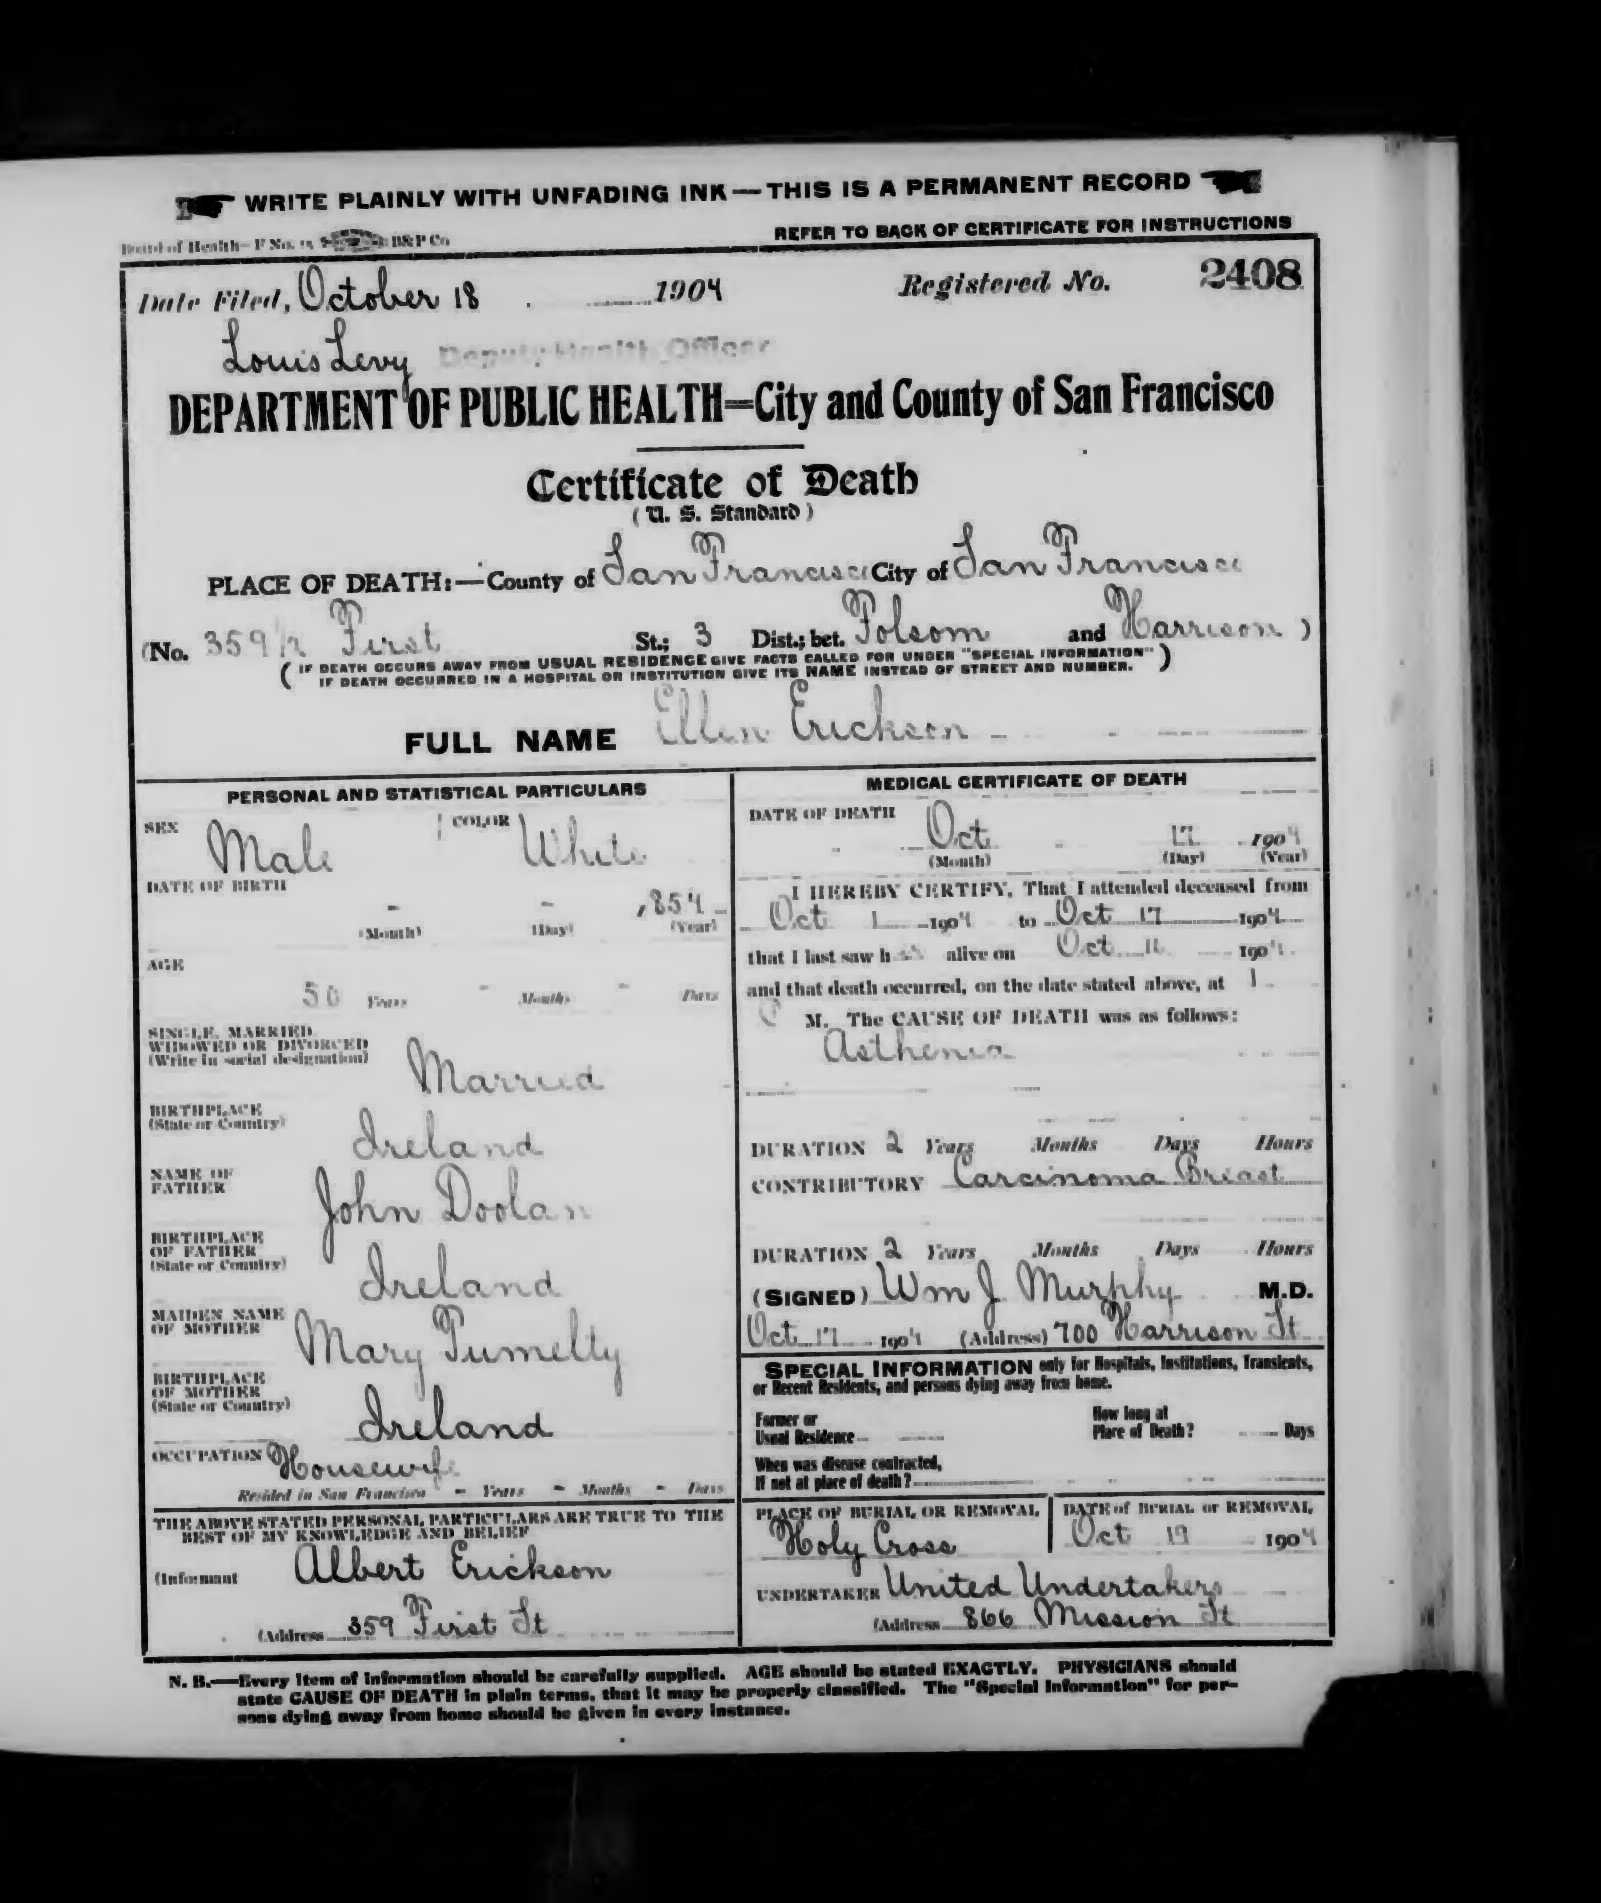 WRITE PLAINLY WITH UNFADING INK—THIS IS A PERMANENT RECORD
Board of Health—F No. B&P Co
REFER TO BACK OF CERTIFICATE FOR INSTRUCTIONS
Date Filed, October 18 1904 Registered No. 2408
Louis Levy Deputy Health Officer
DEPARTMENT OF PUBLIC HEALTH=City and County of San Francisco
Certificate of Death
(U. S. Standard)
PLACE OF DEATH:—County of San Francisco City of San Francisco
(No. 359 1/2 First St.; 3 Dist.; bet. Folsom and Harrison )
( IF DEATH OCCURS AWAY FROM USUAL RESIDENCE GIVE FACTS CALLED FOR UNDER "SPECIAL INFORMATION" )
IF DEATH OCCURRED IN A HOSPITAL OR INSTITUTION GIVE ITS NAME INSTEAD OF STREET AND NUMBER.
FULL NAME Ellen Erickson
PERSONAL AND STATISTICAL PARTICULARS
SEX Male COLOR White
DATE OF BIRTH
- - ,854
(Month) (Day) (Year)
AGE
50 Years - Months - Days
SINGLE, MARRIED,
WIDOWED OR DIVORCED
(Write in social designation) Married
BIRTHPLACE
(State or Country) Ireland
NAME OF
FATHER John Doolan
BIRTHPLACE
OF FATHER
(State or Country) Ireland
MAIDEN NAME
OF MOTHER Mary Tumelty
BIRTHPLACE
OF MOTHER
(State or Country) Ireland
OCCUPATION Housewife
Resided in San Francisco - Years - Months - Days
THE ABOVE STATED PERSONAL PARTICULARS ARE TRUE TO THE
BEST OF MY KNOWLEDGE AND BELIEF
(Informant Albert Erickson
(Address 359 First St
MEDICAL CERTIFICATE OF DEATH
DATE OF DEATH
Oct 17 1904
(Month) (Day) (Year)
I HEREBY CERTIFY, That I attended deceased from
Oct 1 1904 to Oct 17 1904
that I last saw h alive on Oct 1904
and that death occurred, on the date stated above, at 1
P M. The CAUSE OF DEATH was as follows:
Asthenia
DURATION 2 Years Months Days Hours
CONTRIBUTORY Carcinoma Breast
DURATION 2 Years Months Days Hours
(SIGNED) Wm J Murphy M.D.
Oct 17 1904 (Address) 700 Harrison St
SPECIAL INFORMATION only for Hospitals, Institutions, Transients,
or Recent Residents, and persons dying away from home.
Former or
Usual Residence
How long at
Place of Death? Days
When was disease contracted,
If not at place of death?
PLACE OF BURIAL OR REMOVAL DATE of BURIAL or REMOVAL
Holy Cross Oct 19 1904
UNDERTAKER United Undertakers
(Address 866 Mission St
N. B.—Every item of information should be carefully supplied. AGE should be stated EXACTLY. PHYSICIANS should
state CAUSE OF DEATH in plain terms, that it may be properly classified. The "Special Information" for per-
sons dying away from home should be given in every instance.